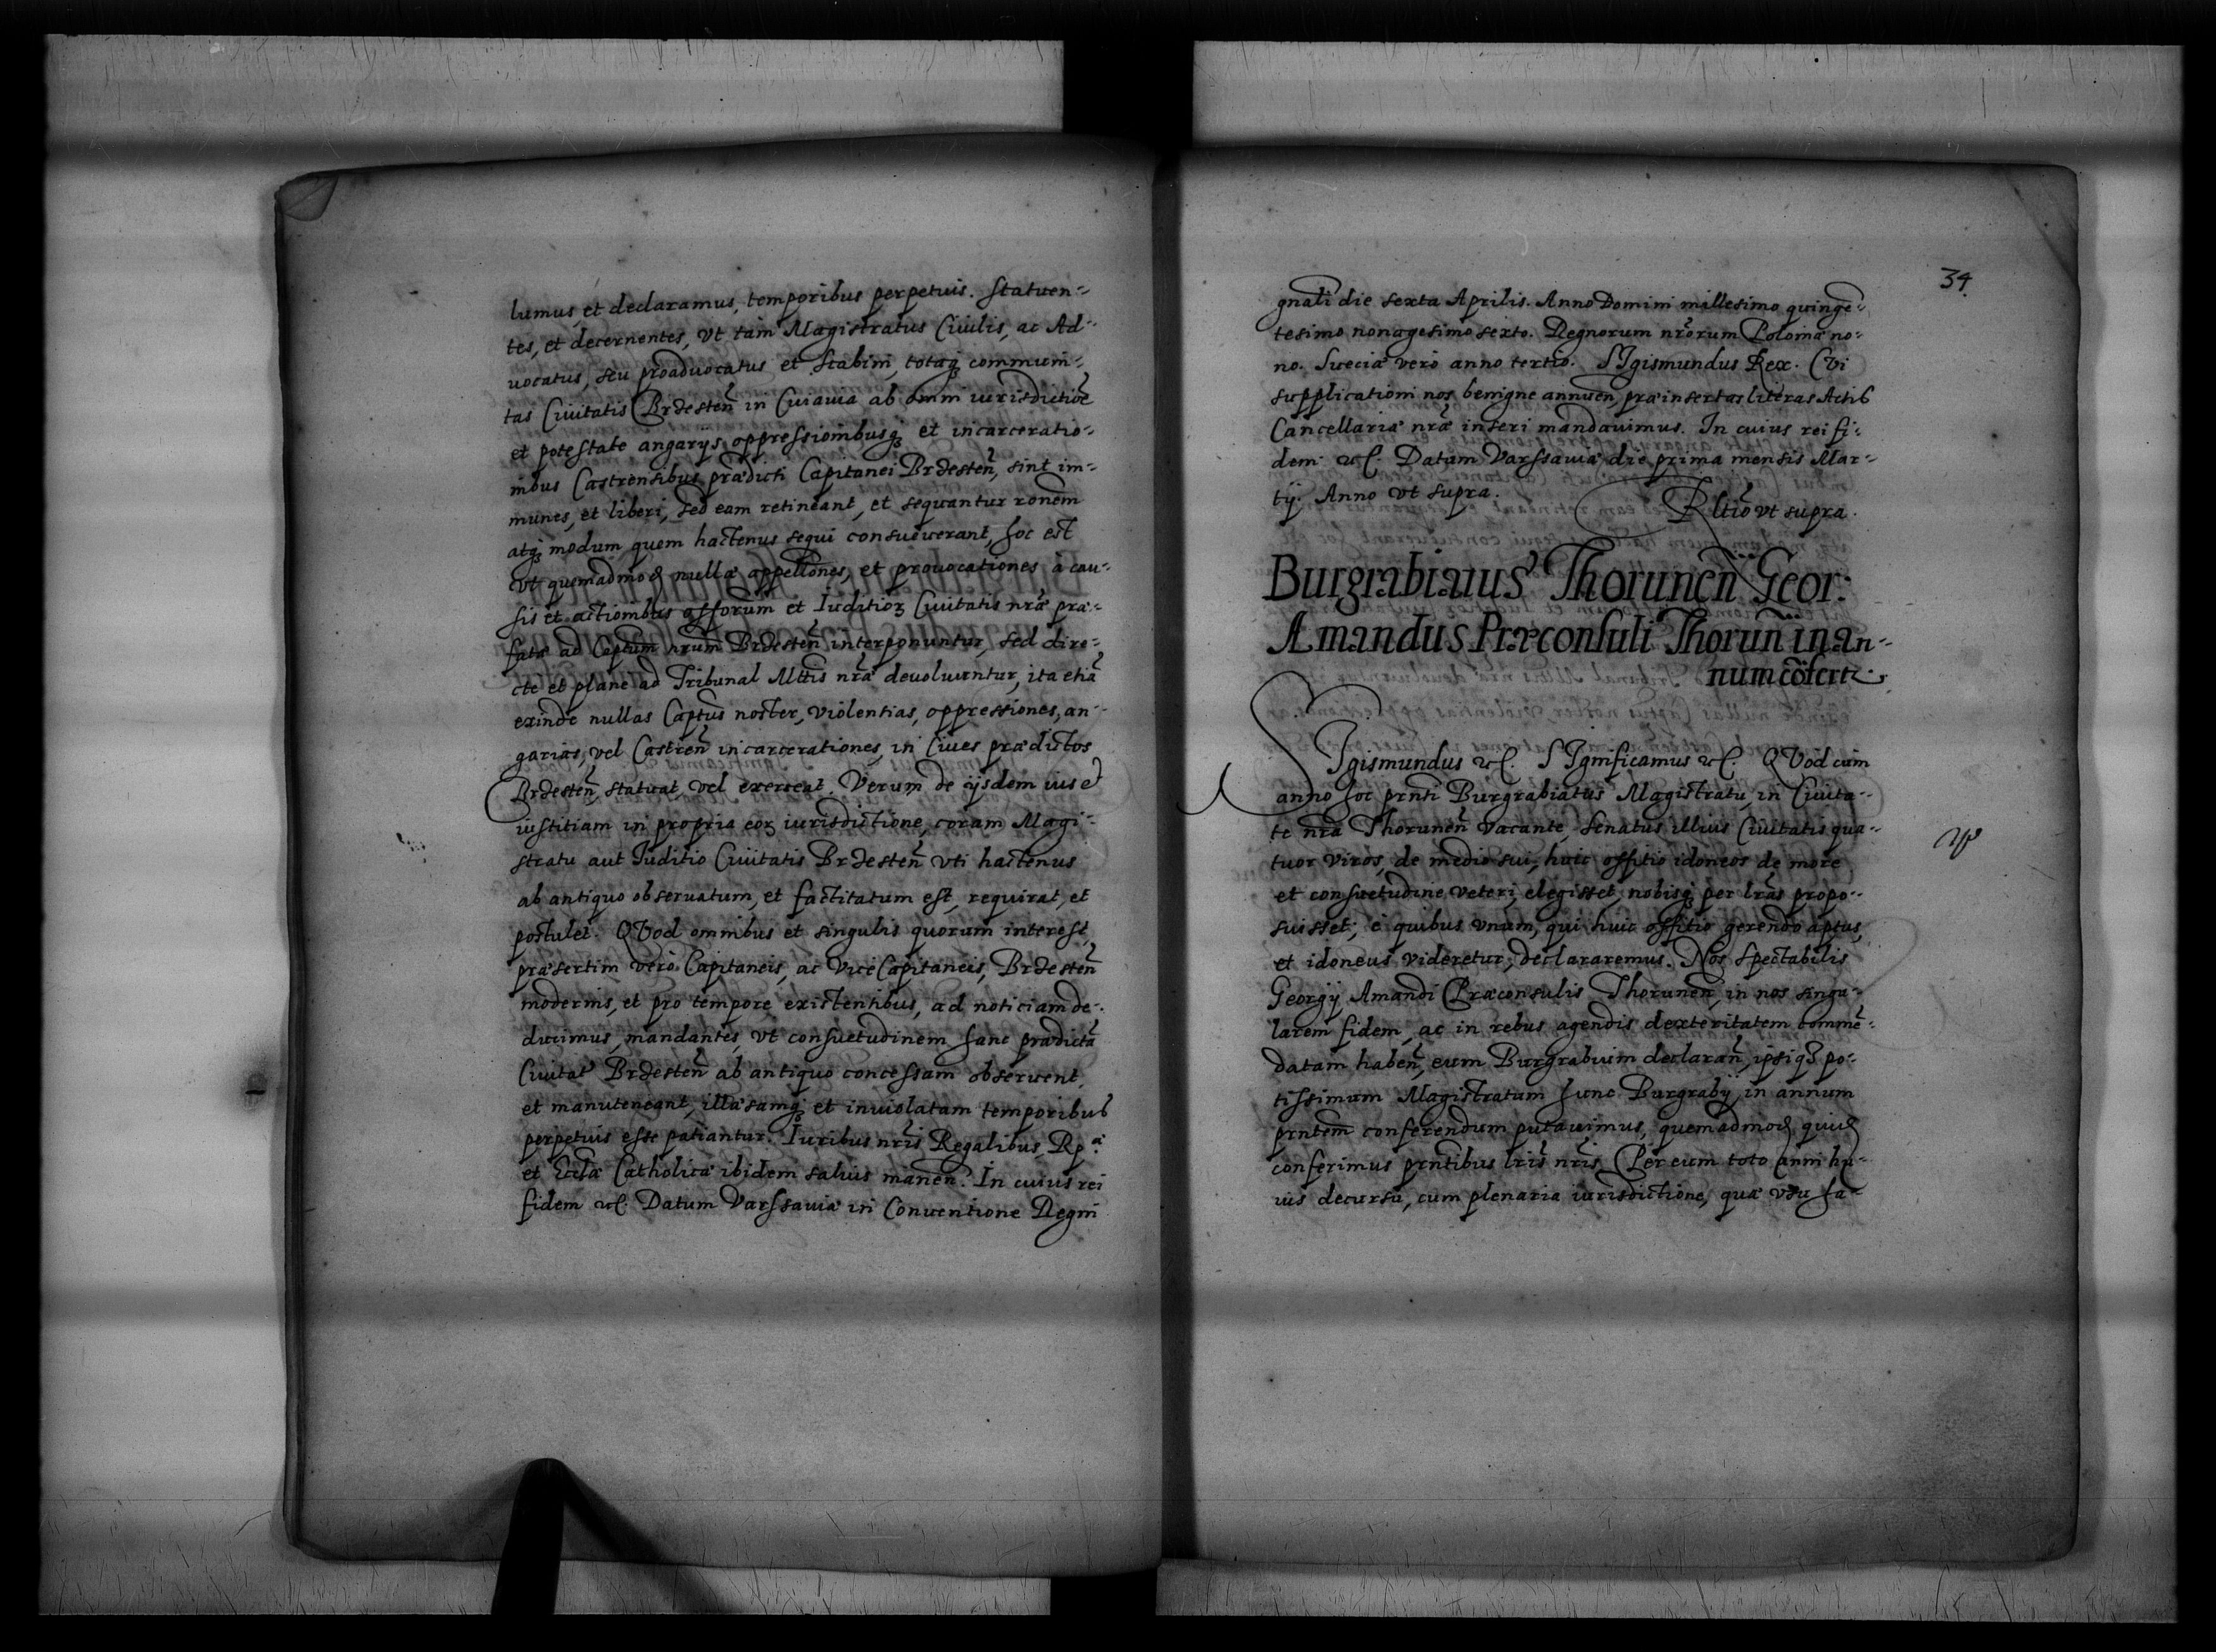 lumus, et declaramus, temporibus perpetuis. Statuen-
tes, et decernentes, vt tam Magistratus Ciuilis, ac Ad-
uocatus, seu proaduocatus et Scabini, totaq; communi-
tas Ciuitatis Brzesten̄ in Cuiauia ab omni iurisdictiōe
et potestate angarijs oppressionibusq; et incarceratio-
nibus Castrensibus prædicti Capitanei Brzesten̄, sint im-
munes, et liberi, sed eam retineant, et sequantur ronem
atq; modum quem hactenus sequi consueuerant, hoc est
vt quemadmod nullæ appellōnes, et prouocationes à cau-
sis et actionibus offorum et Iuditior Ciuitatis nr̄æ præ-
fatæ ad Captum nrum Brzesten̄ interponuntur, sed dire-
cte et plane ad Tribunal Mttis nr̄æ deuoluuntur, ita etiā
exinde nullas Captus noster, violentias, oppressiones, an-
garias, vel Castren̄ incarcerationes, in Ciues prædictos
Brzesten̄, statuat, vel exerceat. Verum de ijsdem ius et
iustitiam in propria eor iurisdictione, coram Magi-
stratu aut Iuditio Ciuitatis Brzesten̄ vti hactenus
ab antiquo obseruatum, et factitatum est, requirat, et
postulet. QVod omnibus et singulis quorum interest,
præsertim verò Capitaneis, ac ViceCapitaneis, Brzesten̄
modernis, et pro tempore existentibus, ad noticiam de-
ducimus, mandantes, vt consuetudinem hanc prædictā
Ciuitat Brzesten̄ ab antiquo concessam obseruent,
et manuteneant, illæsamq; et inuiolatam temporibus
perpetuis esse patiantur. Iuribus nr̄is Regalibus, Rp.æ
et Ecclæ Catholicæ ibidem saluis manen̄. In cuius rei
fidem etc. Datum Varssauiæ in Conuentione Regni
34.
gnali die sexta Aprilis. Anno Domini millesimo quinge-
tesimo nonagesimo sexto. Regnorum nr̄orum Poloniæ no-
no. Sueciæ verò anno tertio. SIgismundus Rex. CVi
supplicationi nos benigne annuen̄, præinsertas literas Actis
Cancellariæ nr̄æ inseri mandauimus. In cuius rei fi-
dem etc. Datum Varssauiæ die prima mensis Mar-
tij. Anno vt supra.
Rltio vt supra.
Burgrabiatus Thorunen̄ Geor:
Amandus Præconsuli Thorun̄ in an-
num cōfertr.
SIgismundus etc. SIgnificamus etc. QVod cum
anno hoc prnti Burgrabiatus Magistratu, in Ciuita-
te nr̄a Thorunen̄ vacante, Senatus illius Ciuitatis qua-
tuor viros, de medio sui, huic offitio idoneos de more
et consuetudine veteri, elegisset, nobisq; per lrās propo-
suisset, è quibus vnum, qui huic offitio gerendo aptus,
et idoneus videretur, declararemus. Nos Spectabilis
Georgij Amandi Præconsulis Thorunen̄, in nos singu-
larem fidem, ac in rebus agendis dexteritatem commē-
datam haben̄, eum Burgrabium declaran̄, ipsiq; po-
tissimum Magistratum hunc Burgrabij, in annum
prntem conferendum putauimus, quemadmod quid
conferimus prntibus lris nr̄is. Per eum toto anni hu-
ius decursu, cum plenaria iurisdictione, quæ vsu ha-